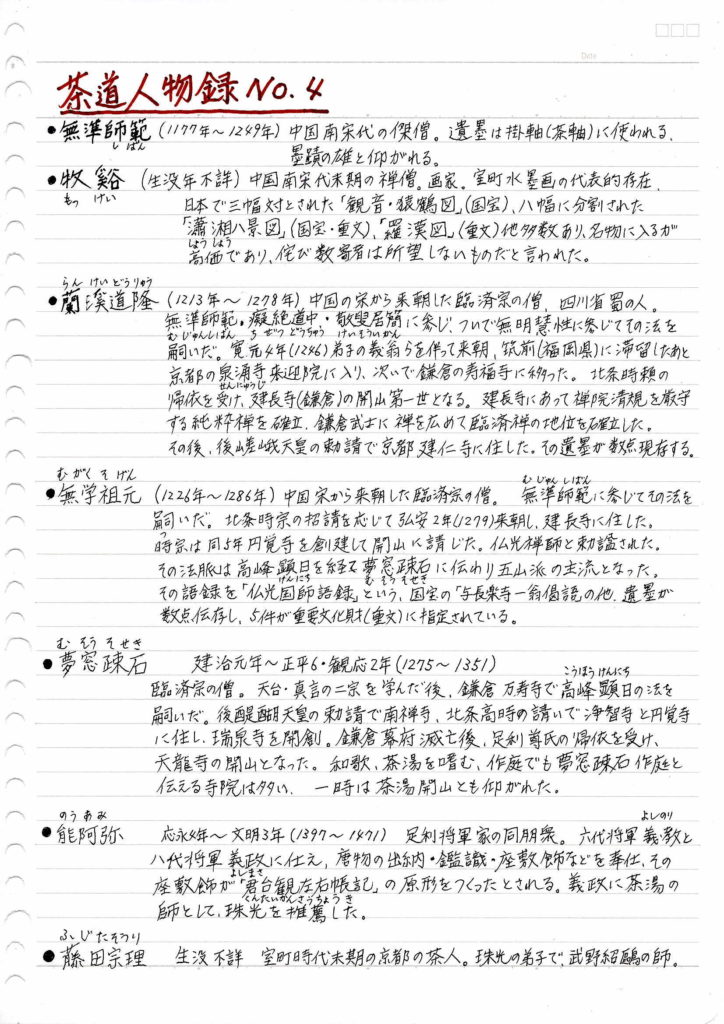 Date
茶道人物録 No. 4
●無準師範 (1177年〜1249年) 中国南宋代の傑僧。遺墨は掛軸(茶軸)に使われる、
しばん
墨蹟の雄と仰がれる。
●牧谿 (生没年不詳) 中国南宋代末期の禅僧。画家。室町水墨画の代表的存在、
もっ けい
日本で三幅対とされた「観音・猿鶴図」(国宝)、八幅に分割された
「瀟湘八景図」(国宝・重文)、「羅漢図」(重文)他多数あり、名物に入るが
しょうしょう
高価であり、侘び数寄者は所望しないものだと言われた。
らん けい どう りゅう
●蘭渓道隆 (1213年〜1278年) 中国の宋から来朝した臨済宗の僧、四川省蜀の人。
無準師範・癡絶道中・敬叟居簡に参じ、ついで無明慧性に参じてその法を
むじゅんしばん ちぜつどうちゅう けいそういかん
嗣いだ。寛元4年(1246)弟子の義翁らを伴って来朝、筑前(福岡県)に滞留したあと
京都の泉涌寺来迎院に入り、次いで鎌倉の寿福寺に移った。北条時頼の
せんにゅうじ
帰依を受け、建長寺(鎌倉)の開山第一世となる。建長寺にあって禅院清規を厳守
する純粋禅を確立、鎌倉武士に禅を広めて臨済禅の地位を確立した。
その後、後嵯峨天皇の勅請で京都建仁寺に住した。その遺墨が数点現存する。
むがく そ げん
●無学祖元 (1226年〜1286年) 中国宋から来朝した臨済宗の僧。無準師範に参じてその法を
むじゅん しばん
嗣いだ。北条時宗の招請を応じて弘安2年(1279)来朝し、建長寺に住した。
つ
時宗は同5年円覚寺を創建して開山に請じた。仏光禅師と勅諡された。
その法脈は高峰顕日を経る夢窓疎石に伝わり五山派の主流となった。
けんにち む そう そせき
その語録を「仏光国師語録」という、国宝の「与長楽寺一翁偈語の他、遺墨が
数点伝存し、5件が重要文化財(重文)に指定されている。
む そう そ せき
●夢窓疎石 建治元年〜正平6・観応2年(1275〜1351)
こうほうけんにち
臨済宗の僧。天台・真言の二宗を学んだ後、鎌倉万寿寺で高峰顕日の法を
嗣いだ。後醍醐天皇の勅請で南禅寺、北条高時の請いで浄智寺と円覚寺
に住し、瑞泉寺を開創。鎌倉幕府滅亡後、足利尊氏の帰依を受け、
天龍寺の開山となった。和歌、茶湯を嗜む、作庭でも夢窓疎石作庭と
伝える寺院は多い、一時は茶湯開山とも仰がれた。
のうあみ
●能阿弥 応永4年〜文明3年(1397〜1471) 足利将軍家の同朋衆。六代将軍義教と
よしのり
八代将軍義政に仕え、唐物の出納・鑑識・座敷飾などを奉仕、その
よしまさ
座敷飾が「君台観左右帳記」の原形をつくったとされる。義政に茶湯の
くんたいかんさうちょうき
師として、珠光を推薦した。
ふじたそうり
●藤田宗理 生没不詳 室町時代末期の京都の茶人。珠光の弟子で、武野紹鷗の師。